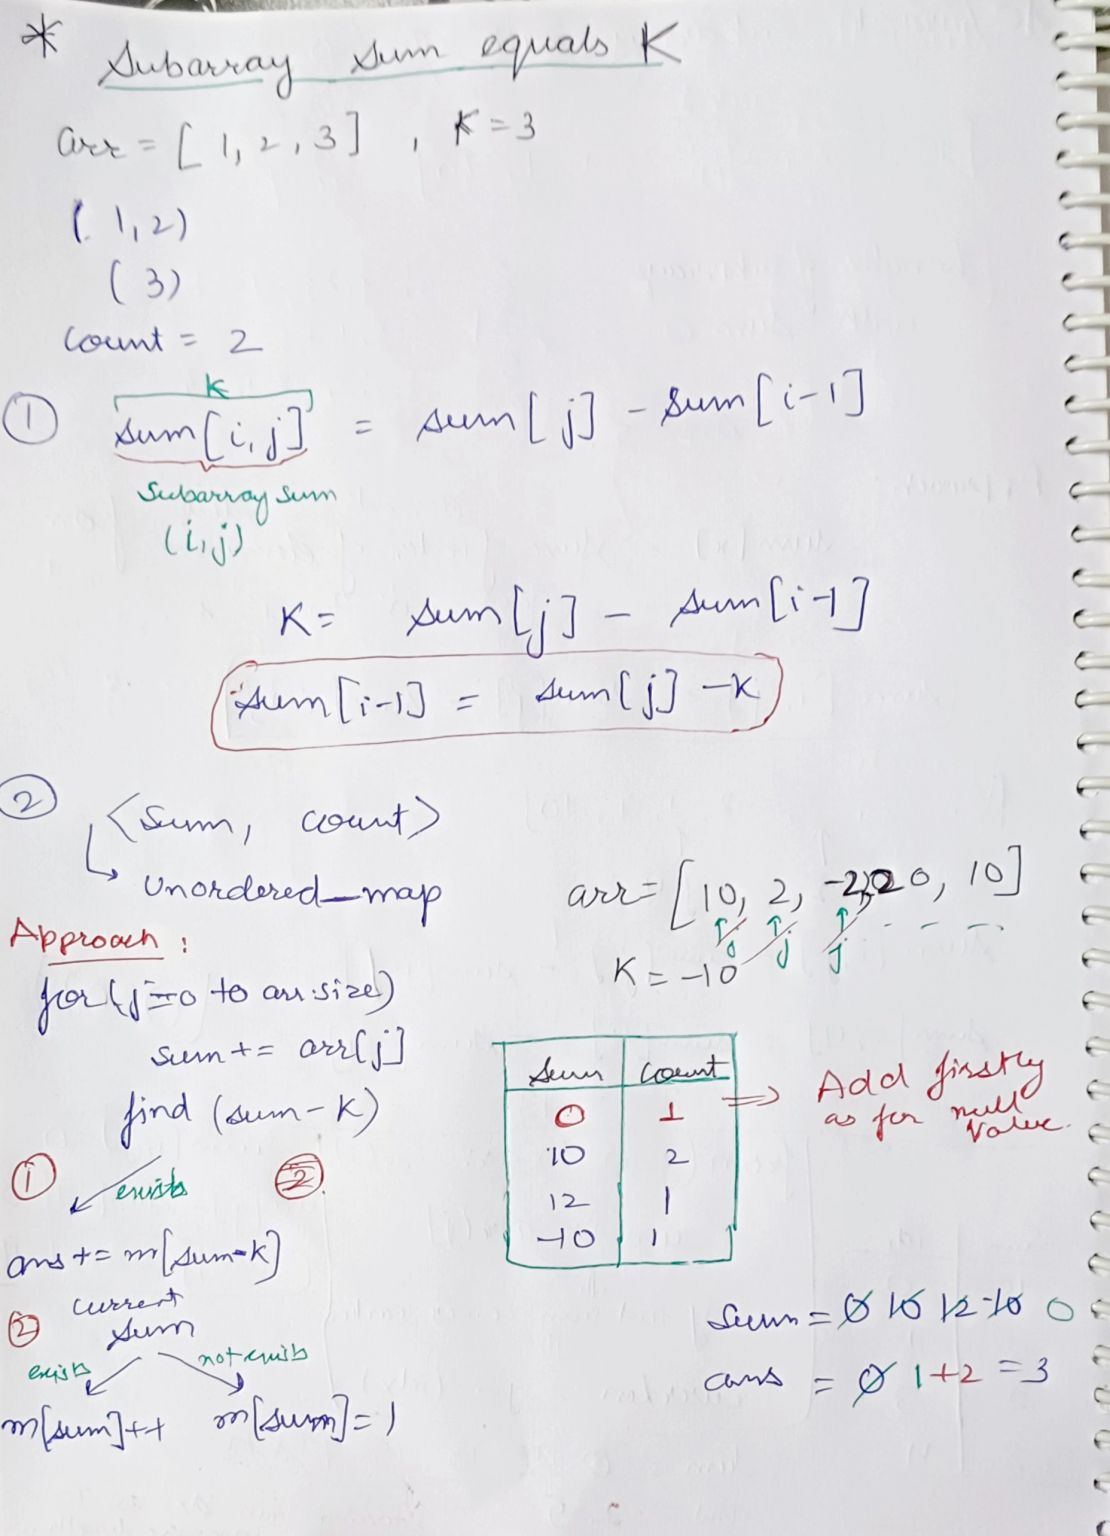 * Subarray Sum equals K
arr = [ 1, 2, 3 ] , K = 3
( 1, 2)
( 3)
Count = 2
K
① Sum[i, j] = sum[ j] - Sum[i-1]
Subarray Sum
(i, j)
K = sum[j] - sum[i-1]
sum[i-1] = sum[j] - K
② <Sum, count>
↳ Unordered_map
arr = [10, 2, -2, 20, 10]
j j j - - -
K = -10
Approach :
for (j=0 to arr.size)
sum += arr[j]
find (sum-K)
① exists ②
ans += m[sum-k]
② current
sum
exists not exists
m[sum]++ m[sum] = 1
Sum Count
0 1 => Add firstly
as for null
Value.
10 2
12 1
-10 1
Sum = 0 10 12 -10 0
ans = 0 1+2 = 3